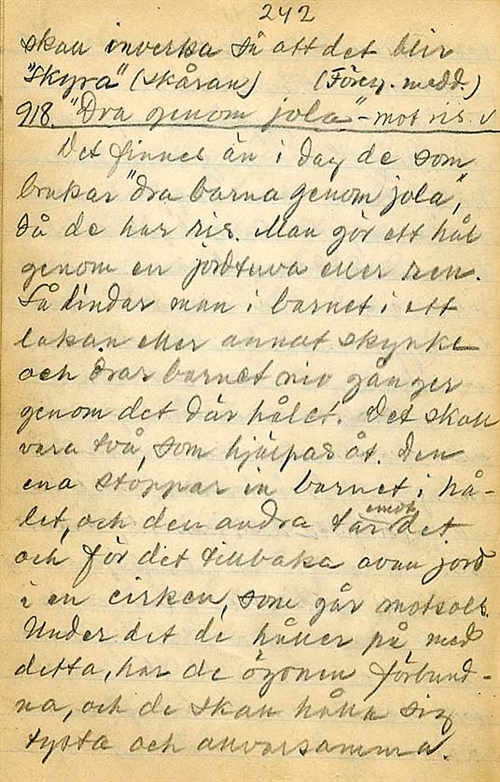 242
skall inverka så att det blir
"skyra" (skåran) (Föreg. medd.)
918. "Dra genom jola" - mot ris. v
Det finnes än i dag de som
brukar "dra barna genom jola",
då de har ris. Man gör ett hål
genom en jordtuva eller ren.
Så lindar man i barnet i ett
lakan eller annat skynke
och drar barnet nio gånger
genom det där hålet. Det skall
vara två, som hjälpas åt. Den
ena stoppar in barnet i hå-
let, och den andra tar emot det
och för det tillbaka ovan jord
i en cirkel, som går motsols.
Under det de håller på med
detta, har de ögonen förbund-
na, och de skall hålla sig
tysta och allvarsamma.